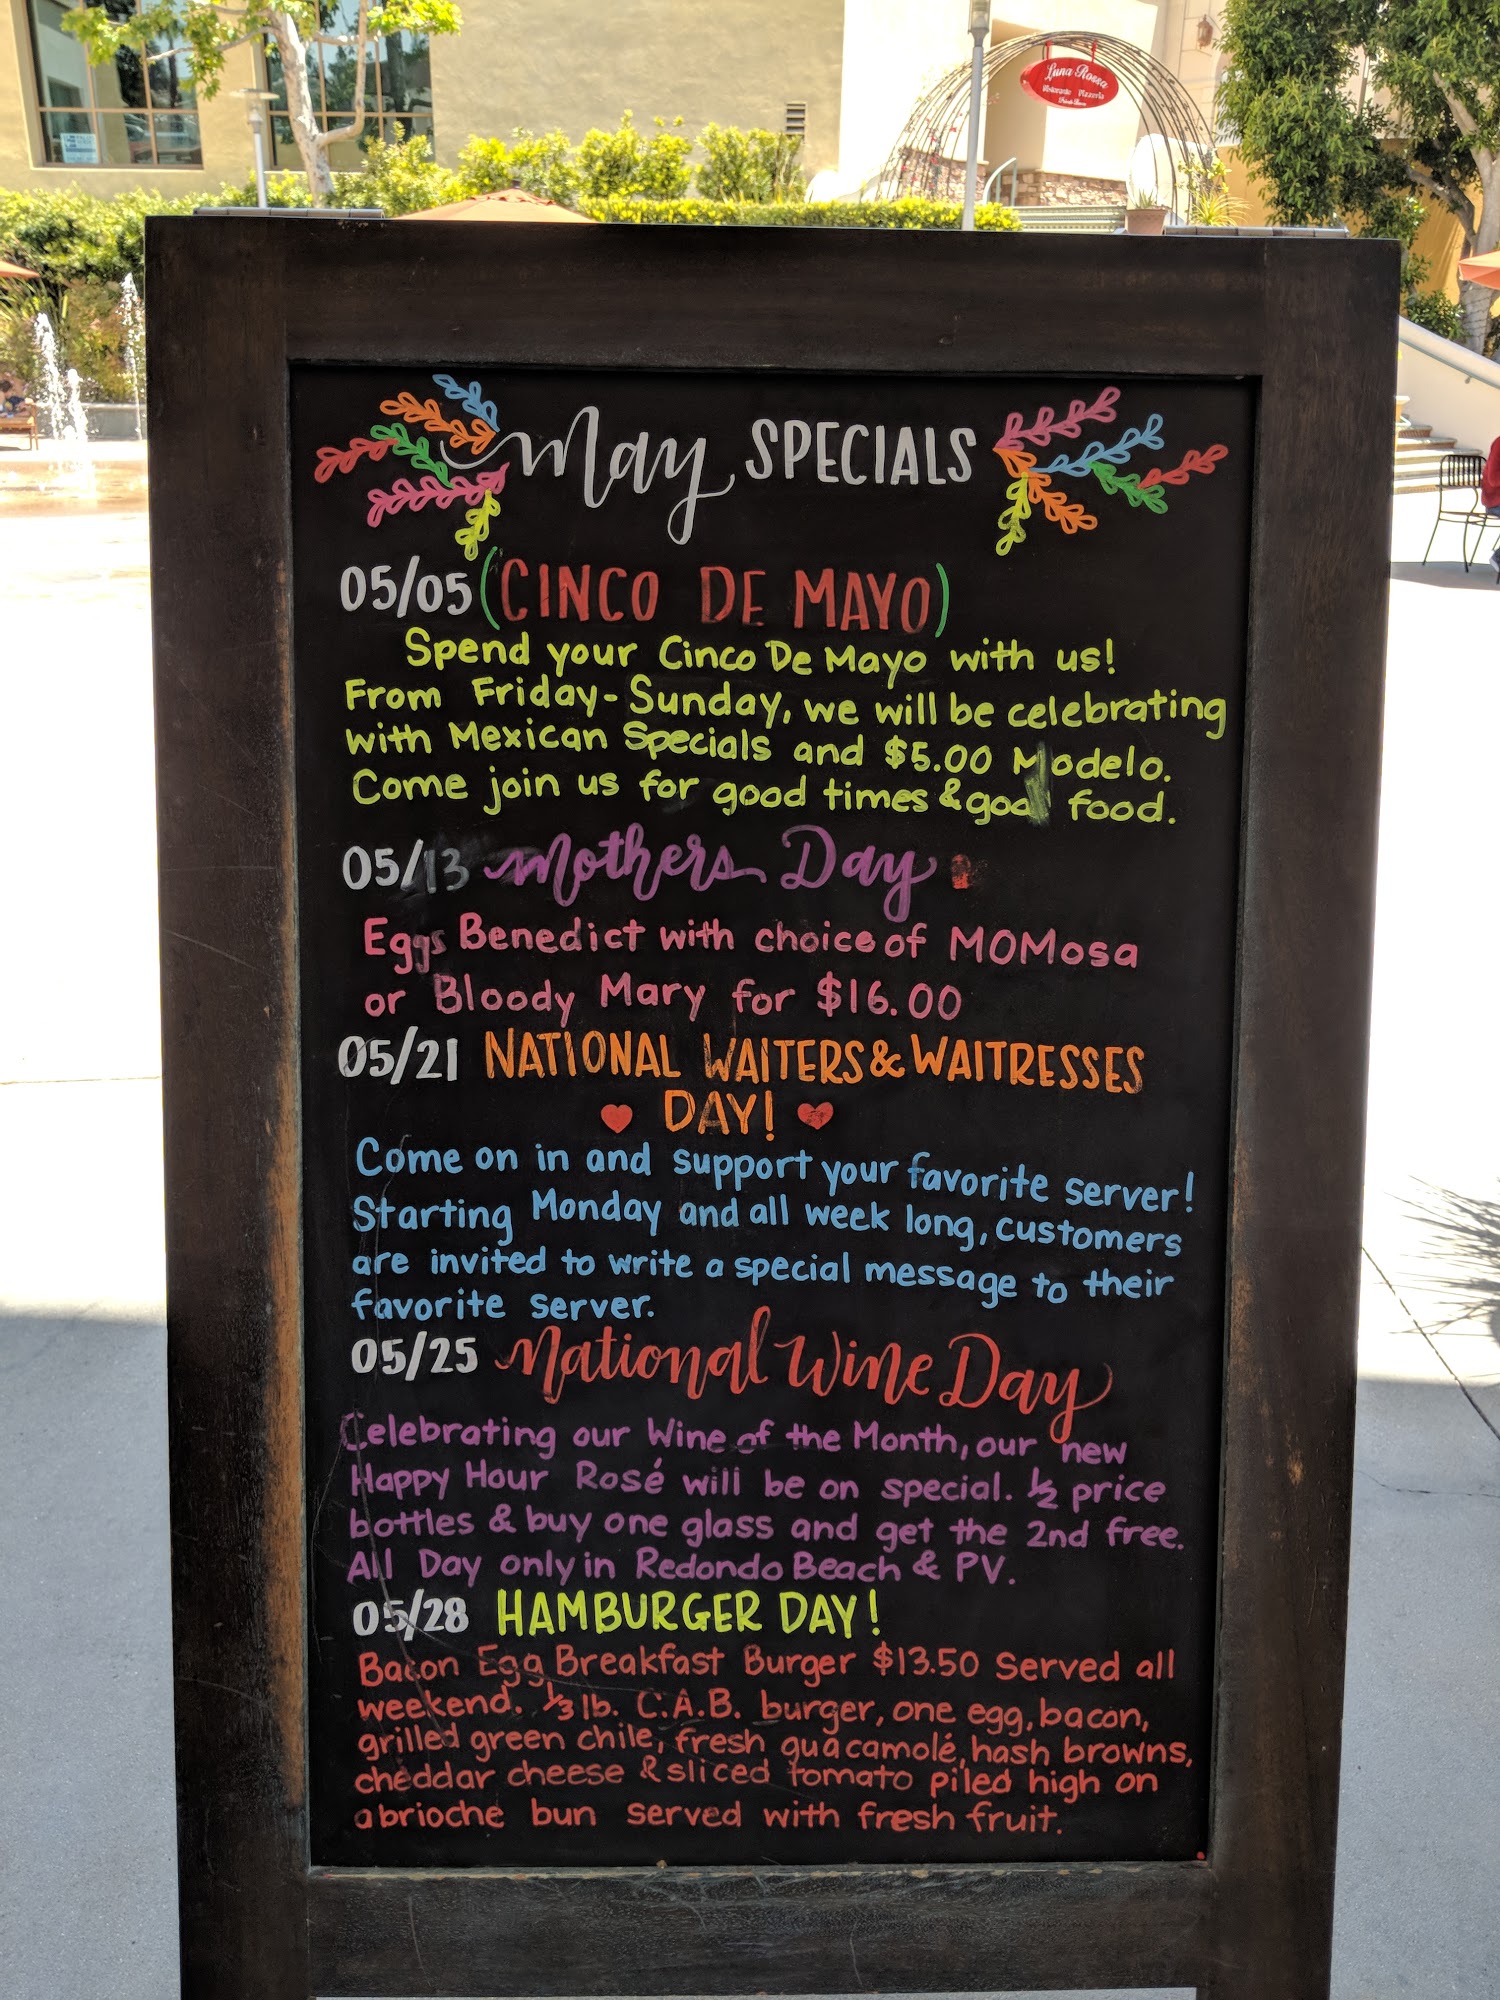 Luna Rossa
Ristorante Pizzeria
May SPECIALS
05/05 (CINCO DE MAYO)
Spend your Cinco De Mayo with us!
From Friday-Sunday, we will be celebrating
with Mexican Specials and $5.00 Modelo.
Come join us for good times & good food.
05/13 Mothers Day
Eggs Benedict with choice of MOMosa
or Bloody Mary for $16.00
05/21 NATIONAL WAITERS & WAITRESSES
DAY!
Come on in and support your favorite server!
Starting Monday and all week long, customers
are invited to write a special message to their
favorite server.
05/25 National Wine Day
Celebrating our Wine of the Month, our new
Happy Hour Rosé will be on special. ½ price
bottles & buy one glass and get the 2nd free.
All Day only in Redondo Beach & PV.
05/28 HAMBURGER DAY!
Bacon Egg Breakfast Burger $13.50 Served all
weekend. ⅓ lb. C.A.B. burger, one egg, bacon,
grilled green chile, fresh guacamolé, hash browns,
cheddar cheese & sliced tomato piled high on
a brioche bun served with fresh fruit.